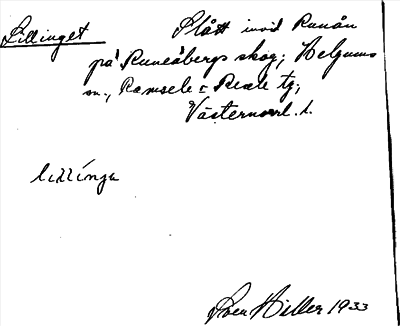 Lillinget Slått invid Runån
på Runeåbergs skog; Helgums
sn., Ramsele o Resele tg;
Västernorrl. l.
lillínga
Sven Hiller 1933